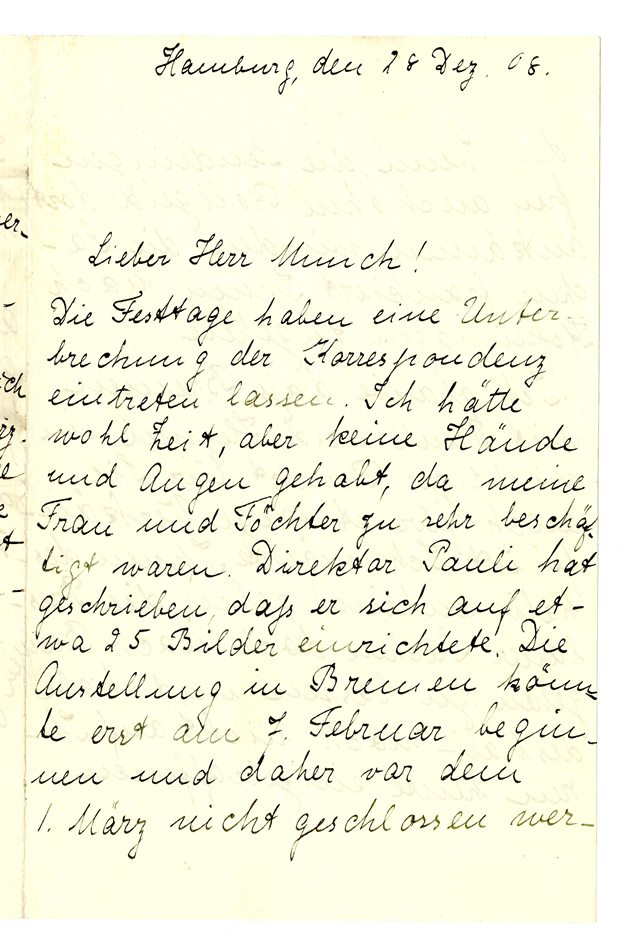 Hamburg, den 28 Dez. 08.
Lieber Herr Munch!
Die Festtage haben eine Unter-
brechung der Korrespondenz
eintreten lassen. Ich hätte
wohl Zeit, aber keine Hände
und Augen gehabt, da meine
Frau und Töchter zu sehr beschäf-
tigt waren. Direktor Pauli hat
geschrieben, daß er sich auf et-
wa 25 Bilder einrichtete. Die
Austellung in Bremen könn-
te erst am 7. Februar begin-
nen und daher var dem
1. März nicht geschlossen wer-